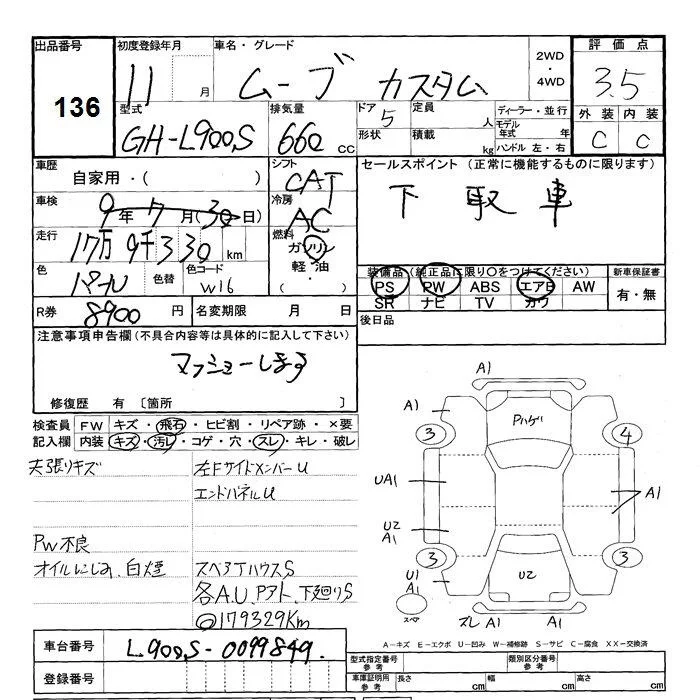 出品番号
136
初度登録年月
11 月
車名・グレード
ムーブ カスタム
2WD
・
4WD
評価点
3.5
外装 内装
C C
型式
GH-L900S
排気量
660 CC
ドア
5
形状
定員
人
積載
kg
ディーラー・並行
モデル年式 年
ハンドル 左・右
車歴
自家用・( )
車検
9年7月(30日)
走行
17万9千330 km
色
パール
色替
色コード
W16
R券
8900 円
名変期限 月 日
シフト
CAT
冷房
AC
燃料
ガソリン
軽・油
( )
セールスポイント (正常に機能するものに限ります)
下取車
装備品 (純正品に限り○をつけてください)
PS PW ABS エアB AW
SR ナビ TV カワ
新車保証書
有・無
後日品
注意事項申告欄 (不具合内容等は具体的に記入して下さい)
修復歴 有 〔箇所 〕
検査員記入欄
FW キズ・飛石・ヒビ割・リペア跡・×要
内装 キズ・汚レ・コゲ・穴・スレ・キレ・破レ
天張りキズ
左FサイドメンバーU
エンドパネルU
PW不良
オイルにじみ、白煙
スペアTハウスS
各A.U、Pアト、下廻りS
@179329Km
A1
A1
Pハゲ
3
4
UA1
A1
U2
A1
3
3
U1
A1
U2
スペア
ズレ A1 A1
A-キズ E-エクボ U-凹み W-補修跡 S-サビ C-腐食 XX-交換済
車台番号
L900S-0099849.
登録番号
型式指定番号 参考
類別区分番号 参考
車庫証明用 参考
長さ cm
幅 cm
高さ cm